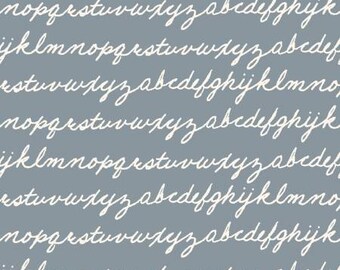 nopqrstuvwxyzabcdefghijklm
jklmnopqrstuvwxyzabcdefgh
nopqrstuvwxyzabcdefghijklm
jklmnopqrstuvwxyzabcdefgh
nopqrstuvwxyzabcdefghijklm
jklmnopqrstuvwxyzabcdefgh
nopqrstuvwxyzabcdefghijklm
jklmnopqrstuvwxyzabcdefgh